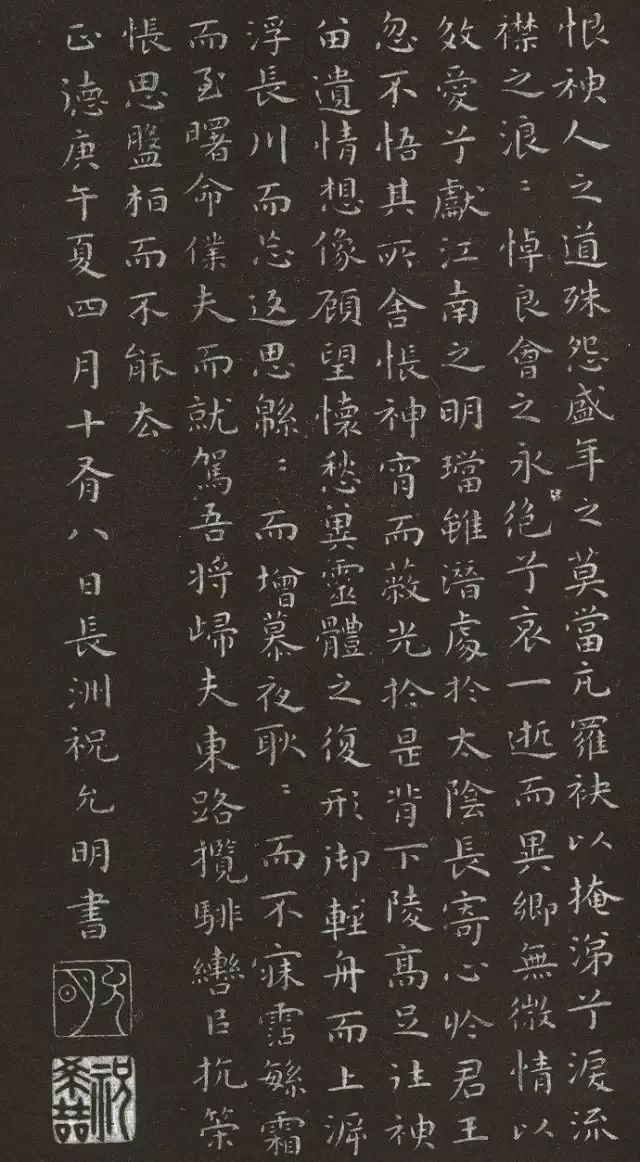 恨神人之道殊怨盛年之莫當亢羅袂以掩涕兮淚流
襟之浪〻悼良會之永絕兮哀一逝而異鄉無微情以
效愛兮獻江南之明璫雖潛處於太陰長寄心於君王
忽不悟其所舍悵神宵而蔽光於是背下陵高足往神
留遺情想像顧望懷愁冀靈體之復形御輕舟而上泝
浮長川而忘返思緜〻而增慕夜耿〻而不寐霑繁霜
而至曙命僕夫而就駕吾將歸夫東路攬騑轡以抗策
悵思盤桓而不能去
正德庚午夏四月十有八日長洲祝允明書
允明
祝希喆